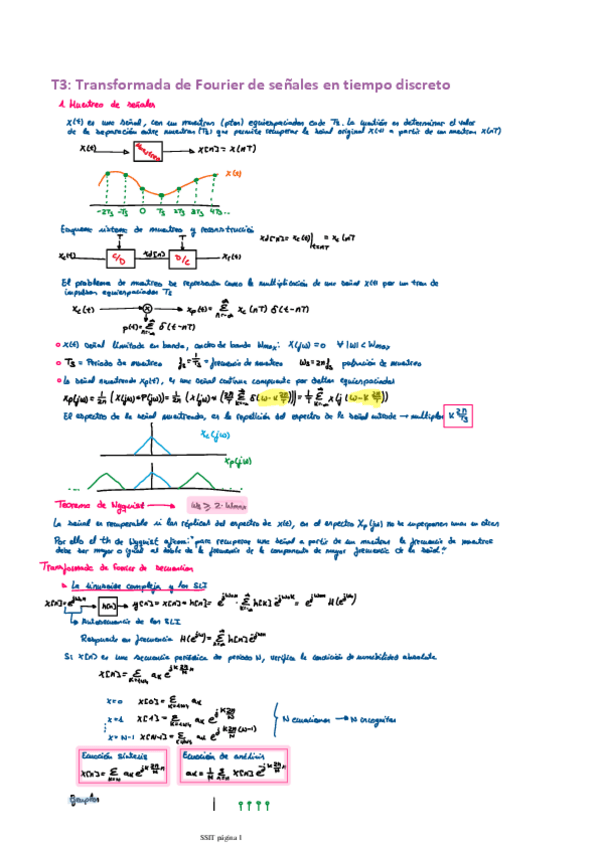 T3: Transformada de Fourier de señales en tiempo discreto
1. Muestreo de señales
x(t) es una señal, con una muestras (ptos) equiespaciados cada Ts. La cuestión es determinar el valor
de la separación entre muestras (Ts) que permite recuperar la señal original x(t) a partir de un muestreo x(nT)
x(t) → muestreo → x[n] = x(nT)
x(t)
-2Ts -Ts 0 Ts 2Ts 3Ts 4Ts...
Esquema sistema de muestreo y reconstrucción
xd[n] = xc(t)|t=nT = xc(nT)
T T
xc(t) C/D xd[n] D/C xc(t)
El problema de muestreo se representa como la multiplicación de una señal x(t) por un tren de
impulsos equiespaciados Ts
xc(t) → x → xp(t) = Σ xc(nT) δ(t-nT)
p(t) = Σ δ(t-nT)
x(t) señal limitada en banda, ancho de banda Wmax: X(jω) = 0 ∀|ω| < Wmax
Ts = Periodo de muestreo fs = 1/Ts = frecuencia de muestreo Ws = 2πfs pulsación de muestreo
La señal muestreada xp(t), es una señal continua compuesta por deltas equiespaciadas
Xp(jω) = 1/2π (X(jω) * P(jω)) = 1/2π (X(jω) * (2π/T Σ δ(ω-k 2π/T))) = 1/T Σ X(j(ω-k 2π/T))
El espectro de la señal muestreada, es la repetición del espectro de la señal entrada → multiplos k 2π/Ts
Xc(jω)
Xp(jω)
Teorema de Nyquist → Ws ≥ 2·Wmax
La señal es recuperable si las réplicas del espectro de x(t), en el espectro Xp(jω) no se superponen unas en otras
Por ello el th de Nyquist afirma: "para recuperar una señal a partir de sus muestras la frecuencia de muestreo
debe ser mayor o igual al doble de la frecuencia de la componente de mayor frecuencia de la señal."
Transformada de Fourier de secuencias
La sinusoide compleja y los SLI
x[n] = e^jω0n → h[n] → y[n] = x[n] * h[n] = e^jω0n · Σ h[k] e^-jω0k = e^jω0n H(e^jω)
Autosecuencia de los SLI
Respuesta en frecuencia H(e^jω) = Σ h[n] e^-jωn
Si x[n] es una secuencia periódica de periodo N, verifica la condición de sumabilidad absoluta
x[n] = Σ ak e^jk 2π/N n
x=0 x[0] = Σ ak
x=1 x[1] = Σ ak e^jk 2π/N
x=N-1 x[N-1] = Σ ak e^jk 2π/N (N-1)
N ecuaciones → N incognitas
Ecuación síntesis
x[n] = Σ ak e^jk 2π/N n
Ecuación de análisis
ak = 1/N Σ x[n] e^-jk 2π/N n
Ejemplos
SSIT página 1